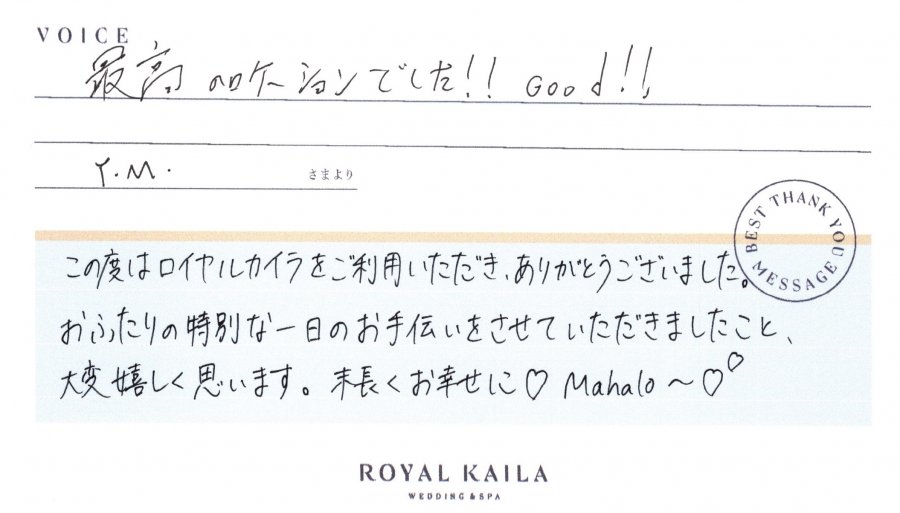 VOICE
最高のロケーションでした!! Good!!
Y.M.
さまより
BEST THANK YOU MESSAGE
この度はロイヤルカイラをご利用いただき、ありがとうございました。
おふたりの特別な一日のお手伝いをさせていただきましたこと、
大変嬉しく思います。末長くお幸せに♡ Mahalo～♡♡
ROYAL KAILA
WEDDING & SPA